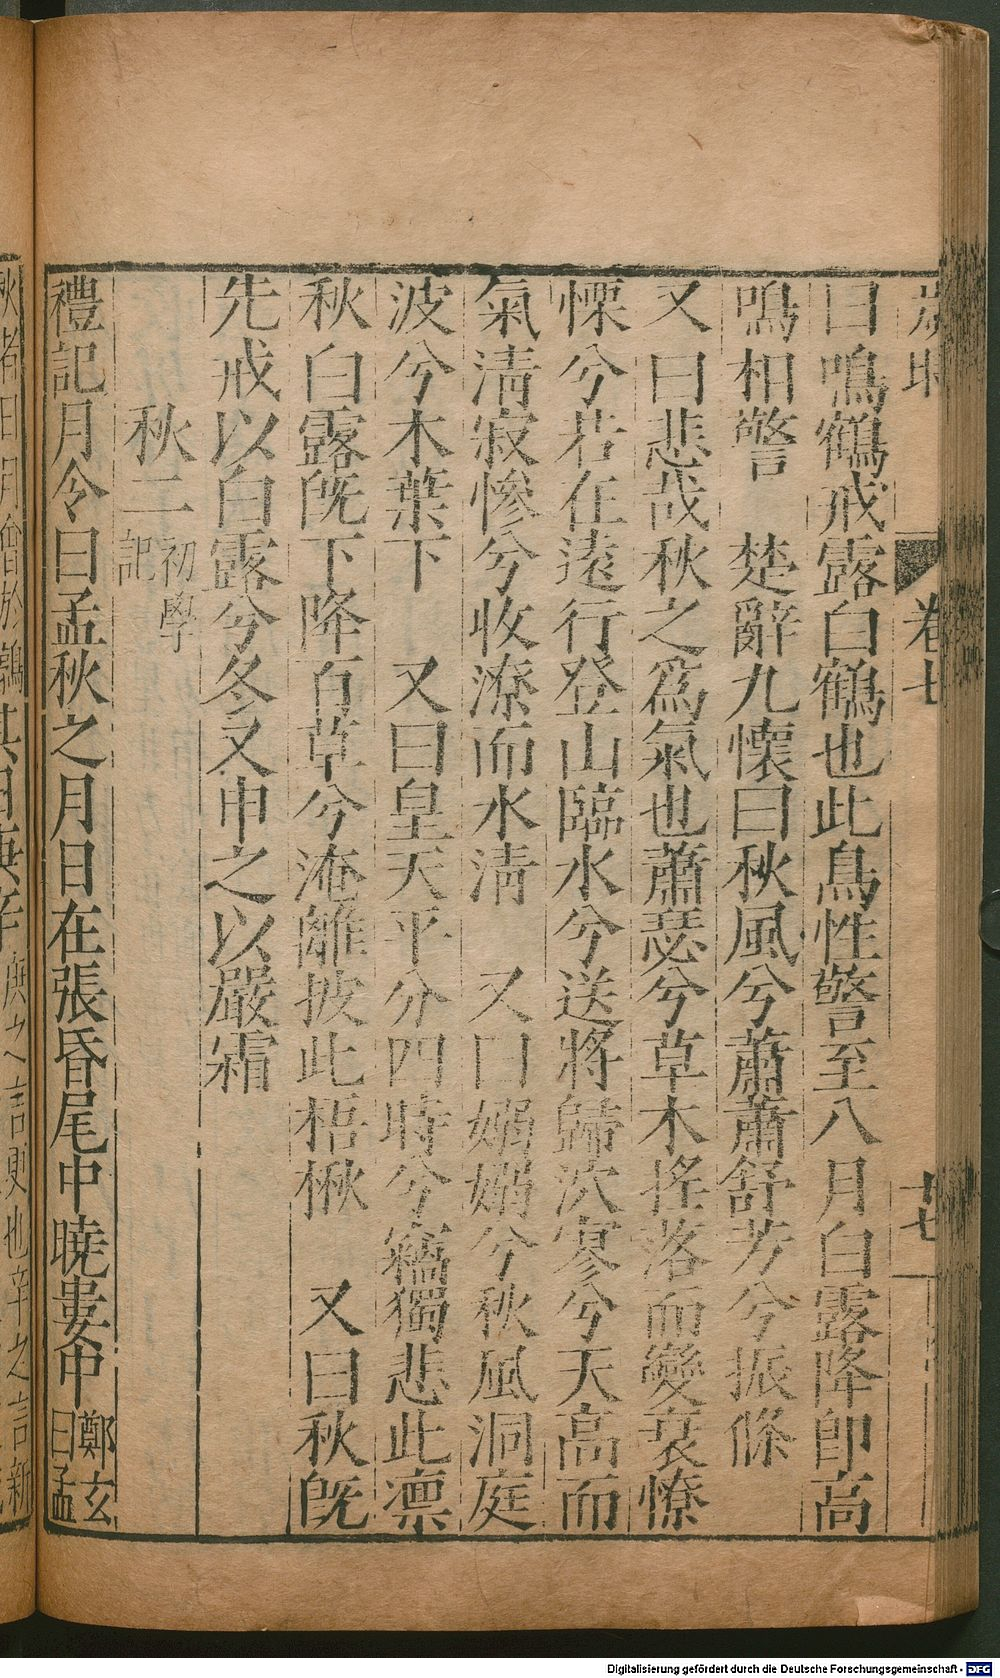 卷七
十七
曰鳴鶴戒露白鶴也此鳥性警至八月白露降卽高
鳴相警　楚辭九懷曰秋風兮蕭蕭舒芳兮振條
又曰悲哉秋之爲氣也蕭瑟兮草木搖落而變衰憭
慄兮若在遠行登山臨水兮送將歸泬寥兮天高而
氣淸寂慘兮收潦而水淸　又曰嫋嫋兮秋風洞庭
波兮木葉下　又曰皇天平分四時兮竊獨悲此凛
秋白露旣下降百草兮淹離披此梧楸　又曰秋旣
先戒以白露兮冬又申之以嚴霜
秋二 初學記
禮記月令曰孟秋之月日在張昏尾中曉婁中 鄭玄曰孟
秋者日月會於鶉 其日庚辛 庚之言更也辛之言新
Digitalisierung gefördert durch die Deutsche Forschungsgemeinschaft - DFG